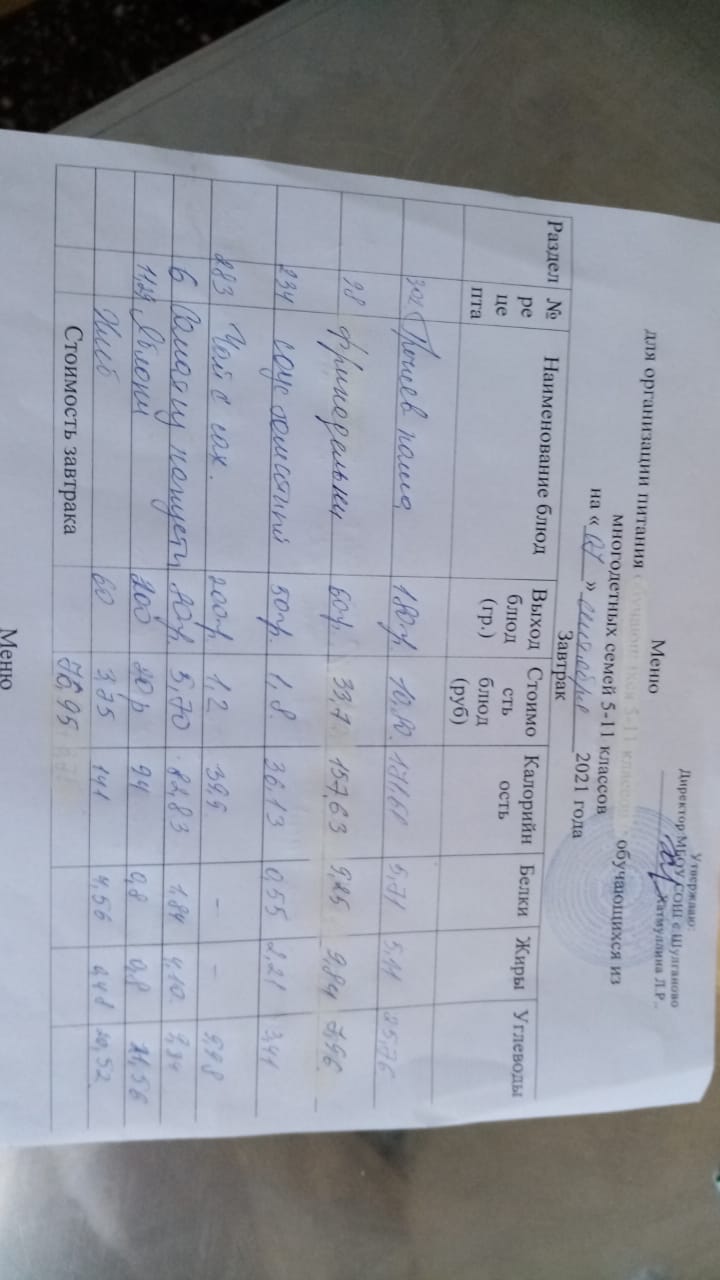 Утверждаю:
Директор МБОУ СОШ с.Шулганово
Хатмуллина Л.Р..
Меню
для организации питания обучающихся 5-11 классов, обучающихся из
многодетных семей 5-11 классов
на « » 2021 года
Завтрак
Раздел № рецепта Наименование блюд Выход блюд (гр.) Стоимость блюд (руб) Калорийность Белки Жиры Углеводы
302 каша 180гр. 10,80. 5,71 5,11 25,76
98 фрикадельки 60гр. 33,7 157,63 9,25 9,84 7,96
234 соус 50гр. 1,8. 36.13 0.55 2,21 3,41
283 Чай с сах. 200гр. 1,2 39,9 - - 9,98
6 5,70 82.83 1.84 4,10. 9,94
Яблоки 200 20р 94 0,8 0,8 21,56
Хлеб 60 3,75 141 4,56 0,48 29,52
Стоимость завтрака 76,95
Меню